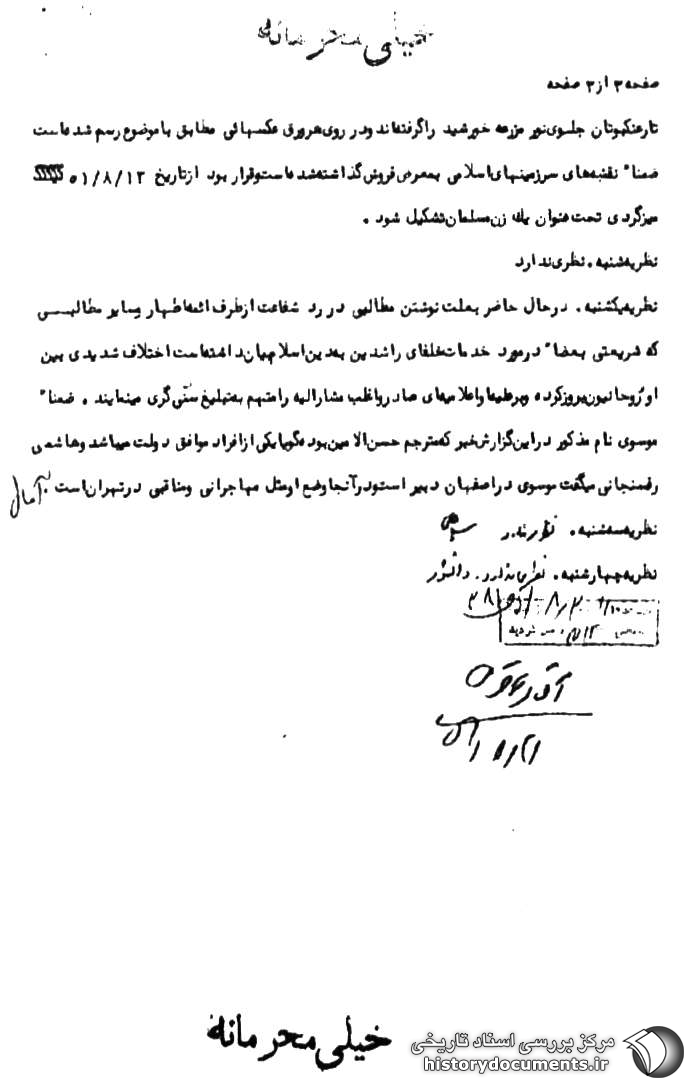 خیلی محرمانه
صفحه ۳ از ۳ صفحه
تارعنکبوتان جلوی نور مزرعه خورشید راگرفته‌اند ودر روی هرورق عکسهائی مطابق باموضوع رسم شده‌است
ضمناً نقشه‌های سرزمینهای اسلامی بمعرض فروش گذاشته‌شده‌است وقرار بود از تاریخ ۵۱/۸/۱۳
میزگردی تحت عنوان یك زن مسلمان تشکیل شود .
نظریه‌شنبه . نظری ندارد
نظریه‌یکشنبه . درحال حاضر بعلت نوشتن مطالبی در رد شفاعت ازطرف ائمه‌اطهار وسایر مطالبی
که شریعتی بعضاً درمورد خدمات خلفای راشدین به دین اسلام بیان داشته‌است اختلاف شدیدی بین
او و روحانیون بروز کرده وبرعلیه او اعلامیه‌های صادر واغلب مشارالیه رامتهم به‌تبلیغ سنّی‌گری مینمایند . ضمناً
موسوی نام مذکور دراین گزارش خبر که‌مترجم حسن الامین بوده گویا یکی از افراد موافق دولت میباشد وهاشمی
رفسنجانی میگفت موسوی دراصفهان دبیر است ودرآنجا وضع او مثل مهاجرانی ومناقبی درتهران است .
نظریه سه‌شنبه . نظری ندارد
نظریه‌چهارشنبه . نظری ندارد .
خیلی محرمانه
مرکز بررسی اسناد تاریخی
historydocuments.ir